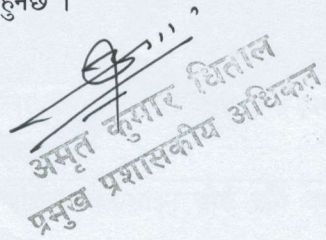 हुनेछ ।
अमृत कुमार धिताल
प्रमुख प्रशासकीय अधिकृत